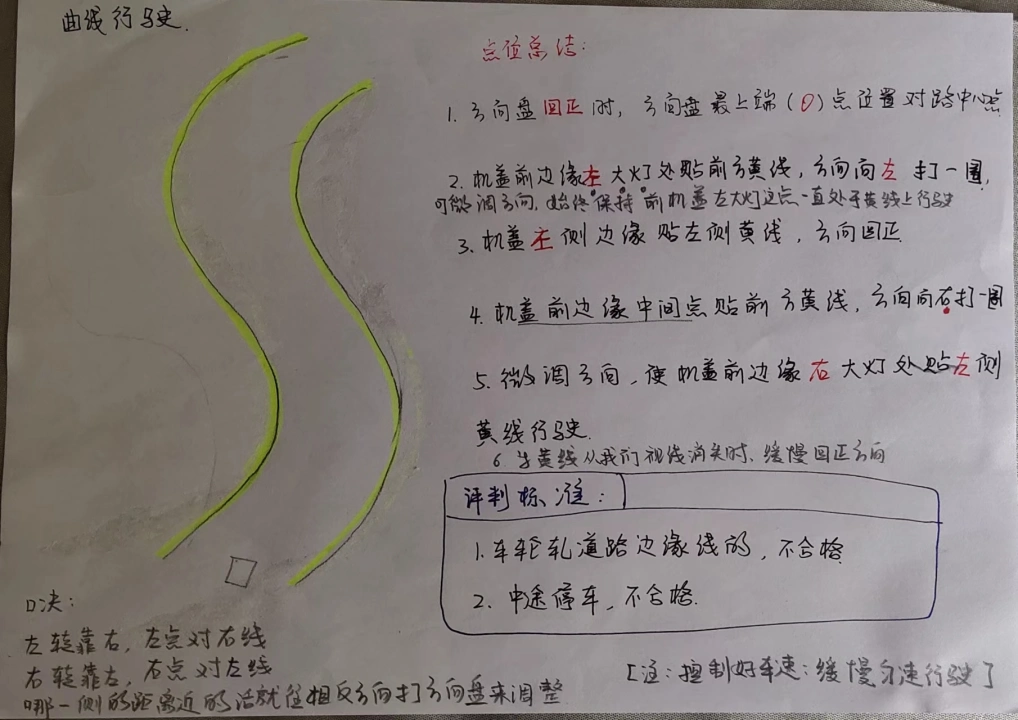 曲线行驶.
点位总结:
1. 方向盘回正时, 方向盘最上端(0)点位置对路中心点
2. 机盖前边缘左大灯处贴前方黄线, 方向向左打一圈,
可微调方向, 始终保持前机盖左大灯这点一直处于黄线上行驶
3. 机盖左侧边缘贴左侧黄线, 方向回正
4. 机盖前边缘中间点贴前方黄线, 方向向右打一圈
5. 微调方向, 使机盖前边缘右大灯处贴左侧
黄线行驶.
6. 当黄线从我们视线消失时、缓慢回正方向
评判标准:
1. 车轮轧道路边缘线的, 不合格
2. 中途停车, 不合格.
口决:
左转靠右, 左点对右线
右转靠左, 右点对左线
哪一侧的距离近的话就往相反方向打方向盘来调整
[注: 控制好车速: 缓慢匀速行驶]